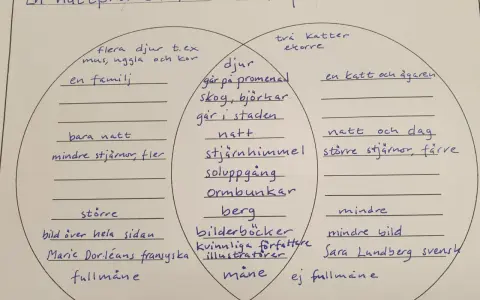 flera djur t.ex
mus, uggla och kor
en familj
bara natt
mindre stjärnor, fler
större
bild över hela sidan
Marie Dorléans fransyska
fullmåne
djur
går på promenad
skog, björkar
går i staden
natt
stjärnhimmel
soluppgång
ormbunkar
berg
bilderböcker
kvinnliga författare
illustratörer
måne
två katter
ekorre
en katt och ägaren
natt och dag
större stjärnor, färre
mindre
mindre bild
Sara Lundberg svensk
ej fullmåne